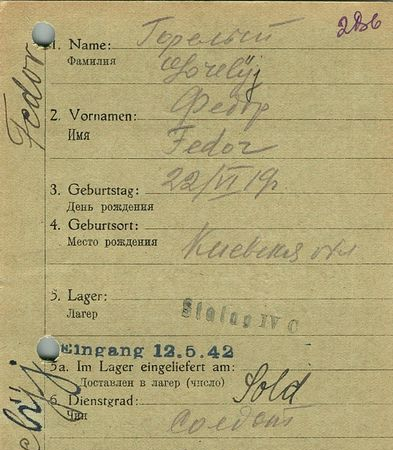 2Вб
Fedor
1. Name: Горелый
Фамилия Gorelÿj
2. Vornamen: Федор
Имя Fedor
3. Geburtstag: 22/VI 19г.
День рождения
4. Geburtsort:
Место рождения Киевская обл
5. Lager:
Лагер Stalag IV C
Eingang 12.5.42
5a. Im Lager eingeliefert am:
Доставлен в лагер (число)
6. Dienstgrad: Sold
Чин солдат